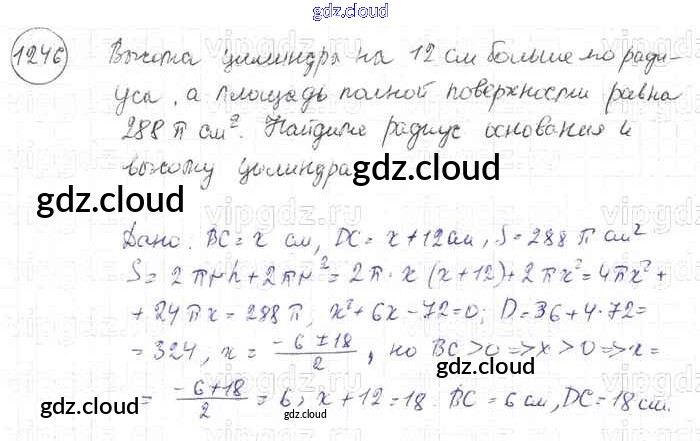 gdz.cloud
1246 Высота цилиндра на 12 см больше его ради-
уса, а площадь полной поверхности равна
288 π см². Найдите радиус основания и
высоту цилиндра
gdz.cloud
gdz.cloud
Дано: BC = x см, DC = x + 12 см, S = 288 π см²
S = 2πrh + 2πr² = 2π · x (x + 12) + 2πx² = 4πx² +
+ 24πx = 288π, x² + 6x - 72 = 0; D = 36 + 4·72 =
= 324, x = (-6 ± 18)/2, но BC > 0 => x > 0 => x =
= (-6 + 18)/2 = 6, x + 12 = 18. BC = 6 см, DC = 18 см.
gdz.cloud
gdz.cloud
gdz.cloud